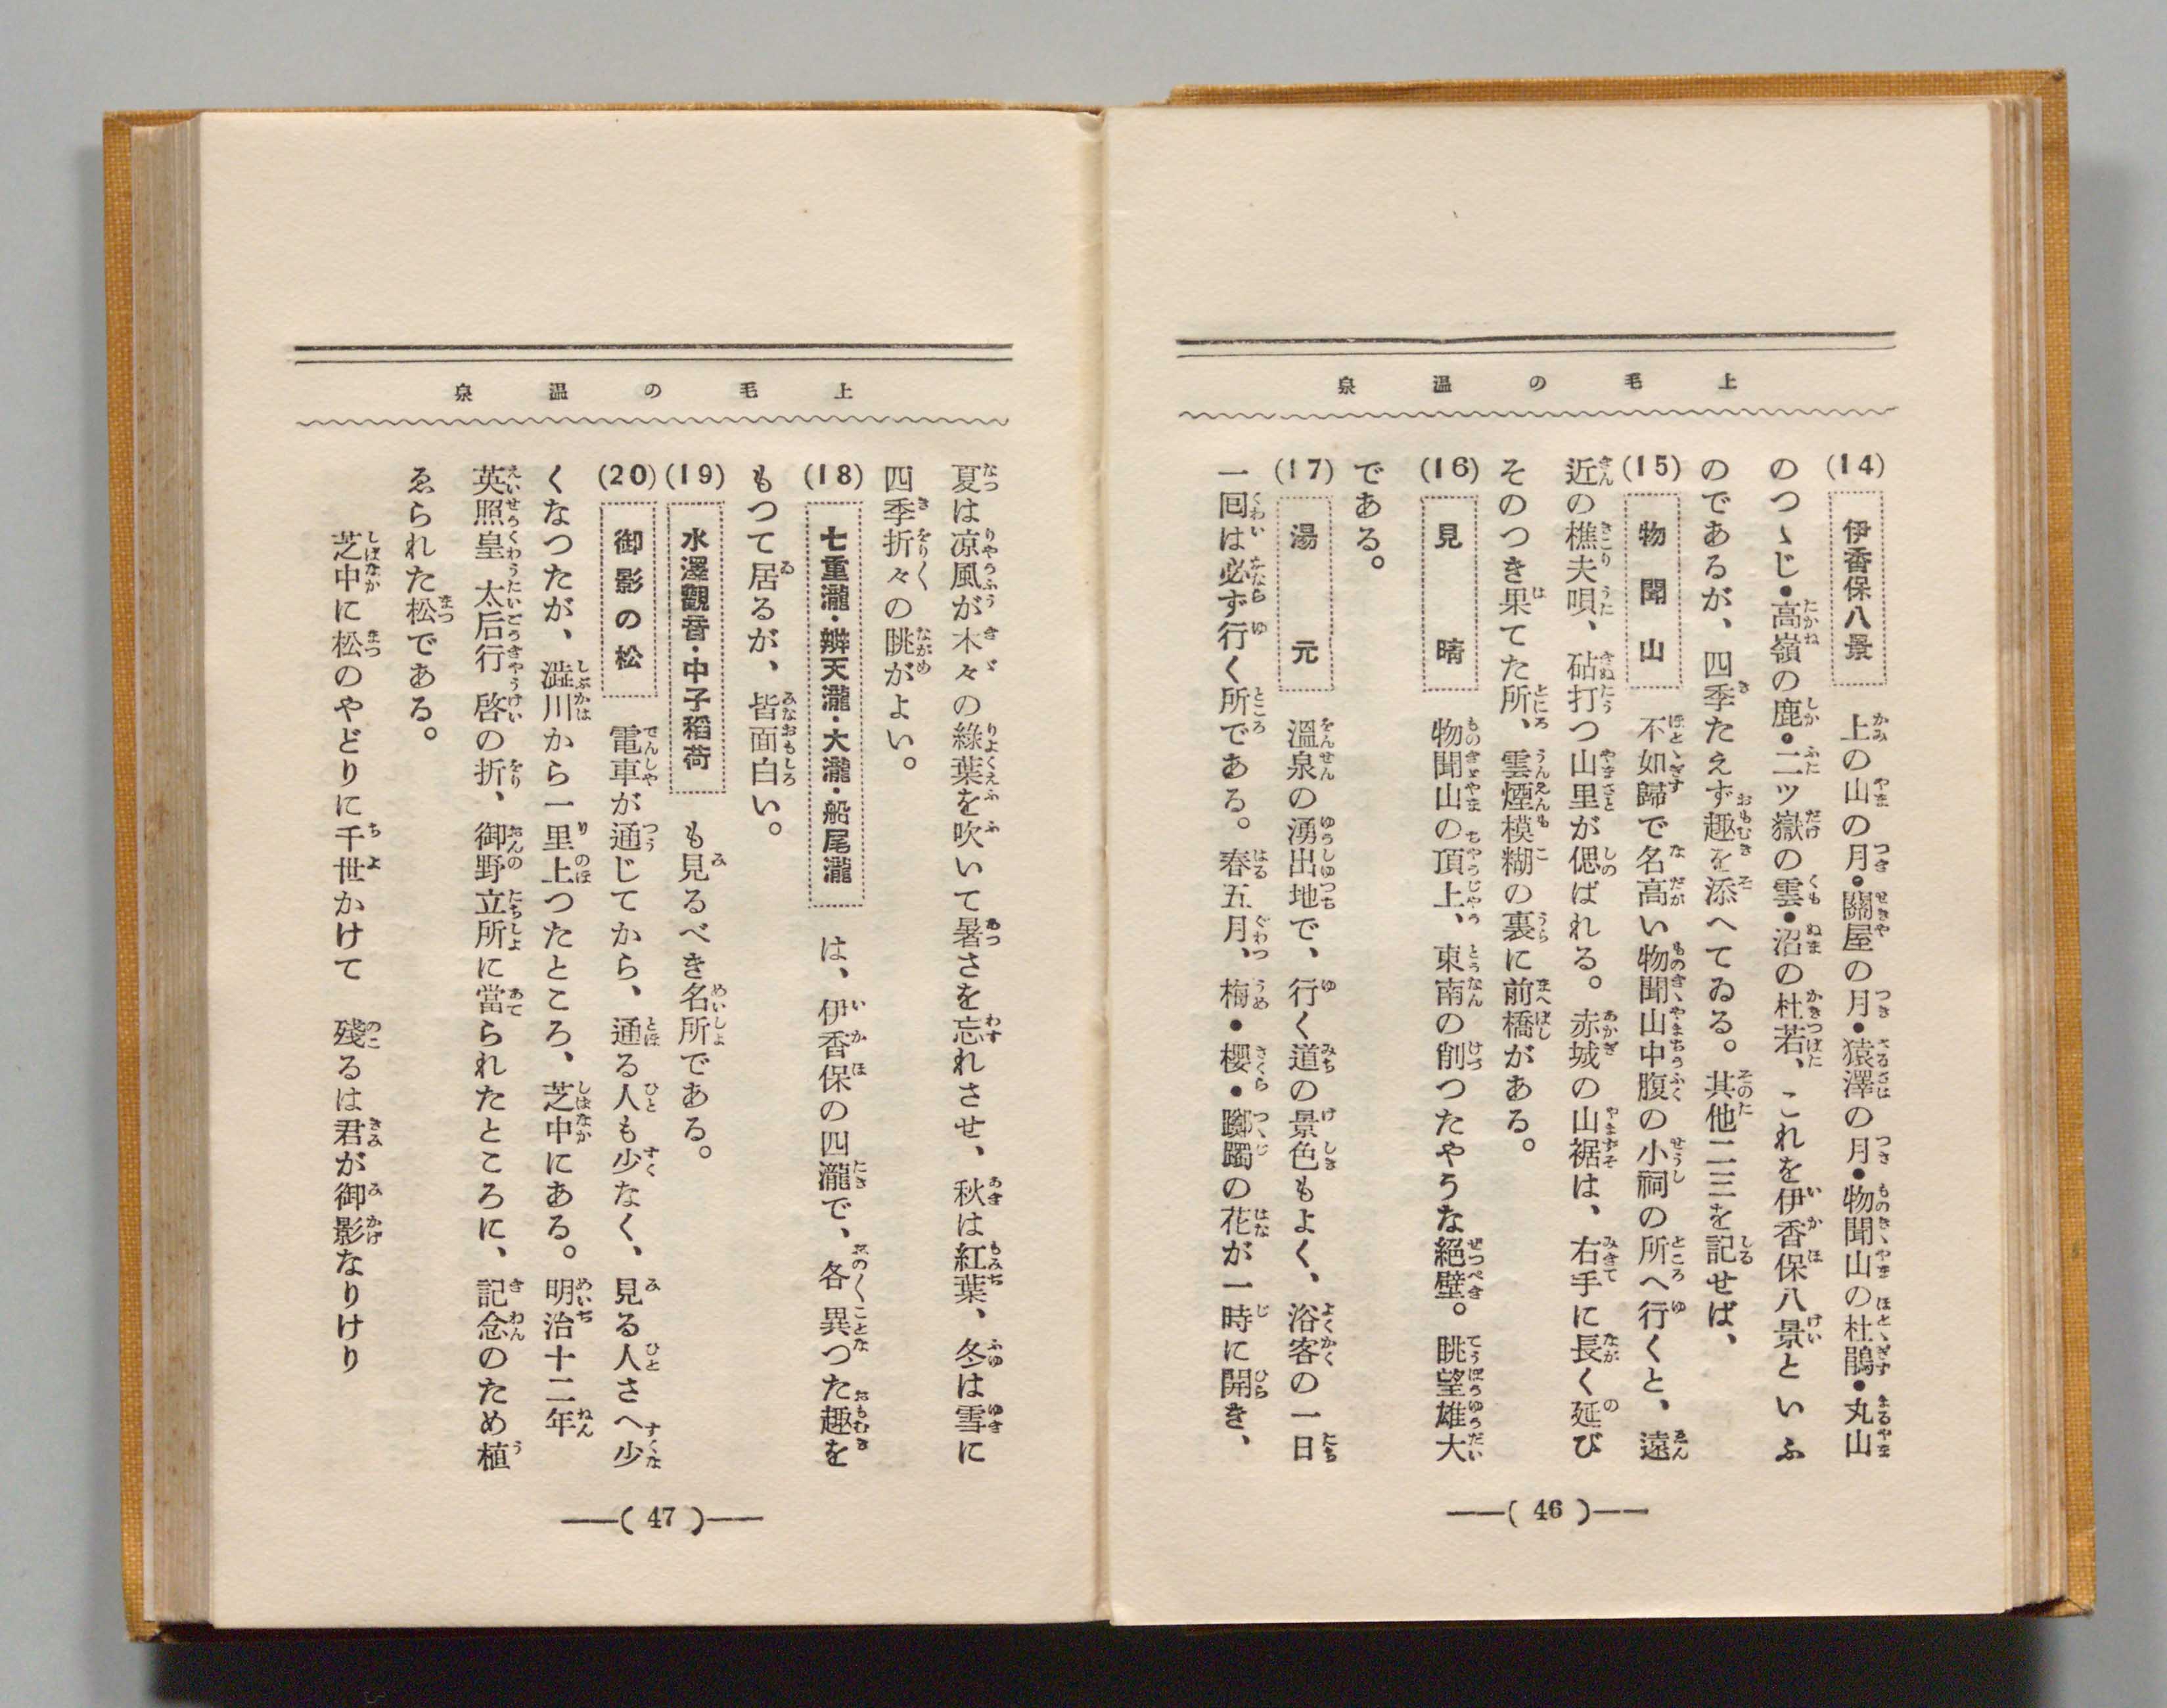 上毛の温泉
(14) 伊香保八景 上の山の月・關屋の月・猿澤の月・物聞山の杜鵑・丸山
のつゝじ・高嶺の鹿・二ツ嶽の雲・沼の杜若、これを伊香保八景といふ
のであるが、四季たえず趣を添へてゐる。其他二三を記せば、
(15) 物聞山 不如歸で名高い物聞山中腹の小祠の所へ行くと、遠
近の樵夫唄、砧打つ山里が偲ばれる。赤城の山裾は、右手に長く延び
そのつき果てた所、雲煙模糊の裏に前橋がある。
(16) 見晴 物聞山の頂上、東南の削つたやうな絕壁。眺望雄大
である。
(17) 湯元 溫泉の湧出地で、行く道の景色もよく、浴客の一日
一囘は必ず行く所である。春五月、梅・櫻・躑躅の花が一時に開き、
―( 46 )―
上毛の温泉
夏は凉風が木々の綠葉を吹いて暑さを忘れさせ、秋は紅葉、冬は雪に
四季折々の眺がよい。
(18) 七重瀧・辨天瀧・大瀧・船尾瀧 は、伊香保の四瀧で、各異つた趣を
もつて居るが、皆面白い。
(19) 水澤觀音・中子稻荷 も見るべき名所である。
(20) 御影の松 電車が通じてから、通る人も少なく、見る人さへ少
くなつたが、澁川から一里上つたところ、芝中にある。明治十二年
英照皇太后行啓の折、御野立所に當られたところに、記念のため植
ゑられた松である。
芝中に松のやどりに千世かけて 殘るは君が御影なりけり
―( 47 )―